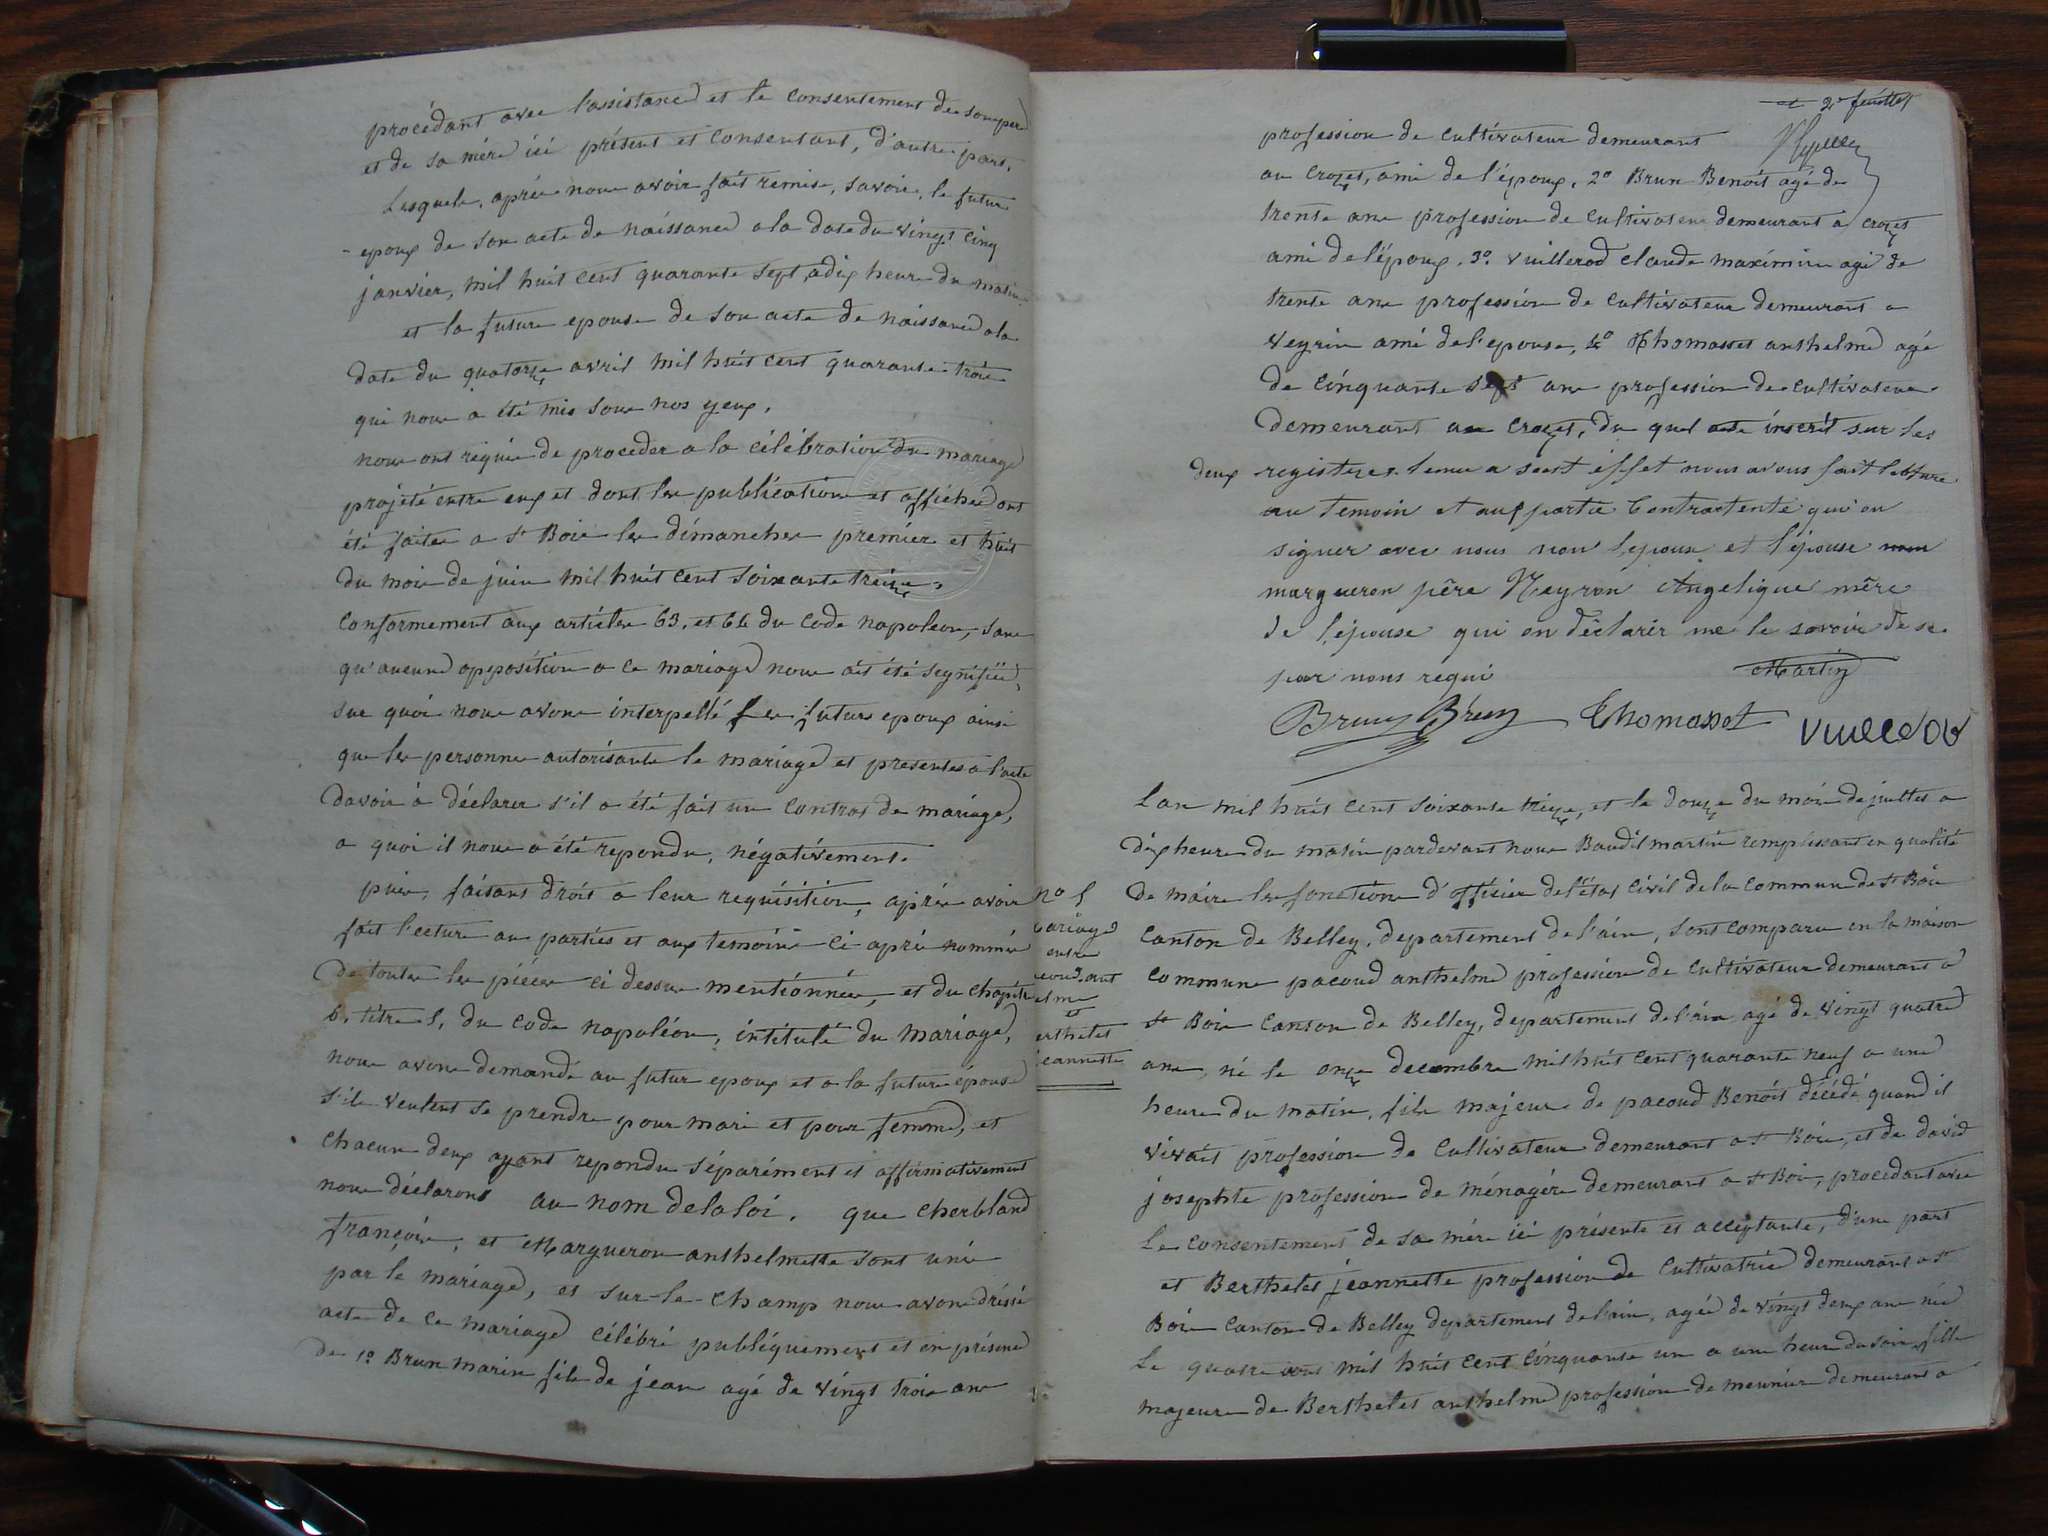 procédant avec l'assistance et le consentement de son père
et de sa mère ici présent et consentant, d'autre part,
Lesquels, après nous avoir fait remise, savoir, le futur
epoux de son acte de naissance a la date du vingt cinq
janvier, mil huit cent quarante sept, a dix heure du matin
et la future epouse de son acte de naissance a la
date du quatorze avril mil huit cent quarante trois
qui nous a été mis sous nos yeux,
nous ont requis de proceder a la célébration du mariage
projeté entre eux et dont les publications et affiches ont
été faites a St Bois les dimanches premier et huit
du mois de juin mil huit cent soixante treize,
conformement aux articles 63, et 64 du code napoleon, sans
qu'aucune opposition a ce mariage nous ait été segnifiée,
sur quoi nous avons interpellé les futurs epoux ainsi
que les personnes autorisants le mariage et presentes a l'acte
davoir à déclarer s'il a été fait un contrat de mariage,
a quoi il nous a été repondu, négativement.
puis, faisant droit a leur requisition, après avoir
fait lecture au parties et aux temoins ci après nommés
de toutes les pièces ci dessus mentionnées, et du chapitre
6, titre 5, du code napoléon, intitulé du mariage,
nous avons demandé au futur epoux et a la future épouse
s'ils veulent se prendre pour mari et pour femme, et
chacun deux ayant repondu séparément et affirmativement
nous déclarons au nom de la loi, que cherbland
françois, et Margueron anthelmette sont unis
par le mariage, et sur-le-champ nous avons dressé
acte de ce mariage célébré publiquement et en présence
de 1º Brun marin fils de jean agé de vingt trois ans
2e feuillet
profession de cultivateur demeurant
au crozet, ami de l'époux, 2º Brun Benoit agé de
trente ans profession de cultivateur demeurant a crozet
ami de l'époux, 3º vuillerod claude maximin agé de
trente ans profession de cultivateur demeurant a
veyrin ami de l'epouse, 4º Thomasset anthelme agé
de cinquante sept ans profession de cultivateur
demeurant au crozet, du quel acte inscrit sur les
deux registres tenu a seet effet nous avons fait lecture
au temoin et aux partie contractente qui on
signer avec nous non lepoux et l'épouse
margueron père Neyron Angelique mère
de l'épouse qui on déclarér ne le savoir de ce
par nous requi
Martin
Brun Brun Thomasset vuillerod
Lan mil huit cent soixante treize, et le douze du mois de juillet a
dix heure du matin pardevant nous Baudit martin remplissant en qualité
de maire les fonctions d'officier de l'état civil de la commune de St Bois
canton de Belley, departement de l'ain, sont comparu en la maison
commune pacoud anthelme profession de cultivateur demeurant a
St Bois canton de Belley, departement de l'ain agé de vingt quatre
ans, né le onze decembre mil huit cent quarante neuf a une
heure du matin, fils majeur de pacoud Benoit décédé, quand il
vivait profession de cultivateur demeurant a St Bois, et de david
josephte profession de ménagère demeurant a St Bois, procedant avec
le consentement de sa mère ici présente et acceptante, d'une part
et Berthelet jeannette profession de cultivatrice demeurant a St
Bois canton de Belley departement de l'ain, agée de vingt deux ans née
le quatre mil huit cent cinquante un a une heure du soir, fille
majeure de Berthelet anthelme profession de meunier demeurant a
no 5
ariage
entre
acoud ant
elme
et
erthelet
jeannette